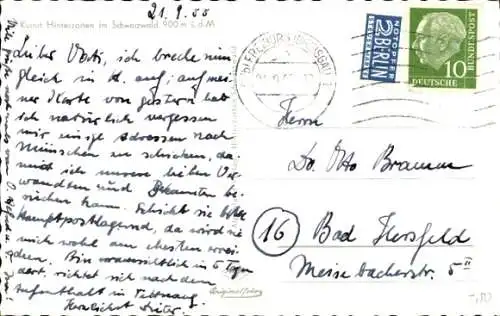 21.9.55
Kurort Hinterzarten im Schwarzwald 900 m ü.d.M
Lieber Vati, ich breche nun
gleich in H. auf, auf mei-
ner Karte von gestern hab
ich natürlich vergessen
mir einige Adressen nach
München zu schicken, da-
mit ich unsere lieben Ver-
wandten und Bekannten be-
suchen kann. Schickt sie bitte
hauptpostlagernd, da wird sie
mich wohl am ehesten errei-
chen. Bin voraussichtlich in 5 Tagen
dort, richtet sich nach dem
Aufenthalt in Tettnang.
Herzlichst Dieter
FREIBURG (BREISGAU)
NOTOPFER
2 BERLIN
STEUERMARKE
DEUTSCHE
BUNDESPOST
10
Herrn
Dr. Otto Brammer
16
Bad Hersfeld
Meisebacherstr. 5 II
Original-Foto